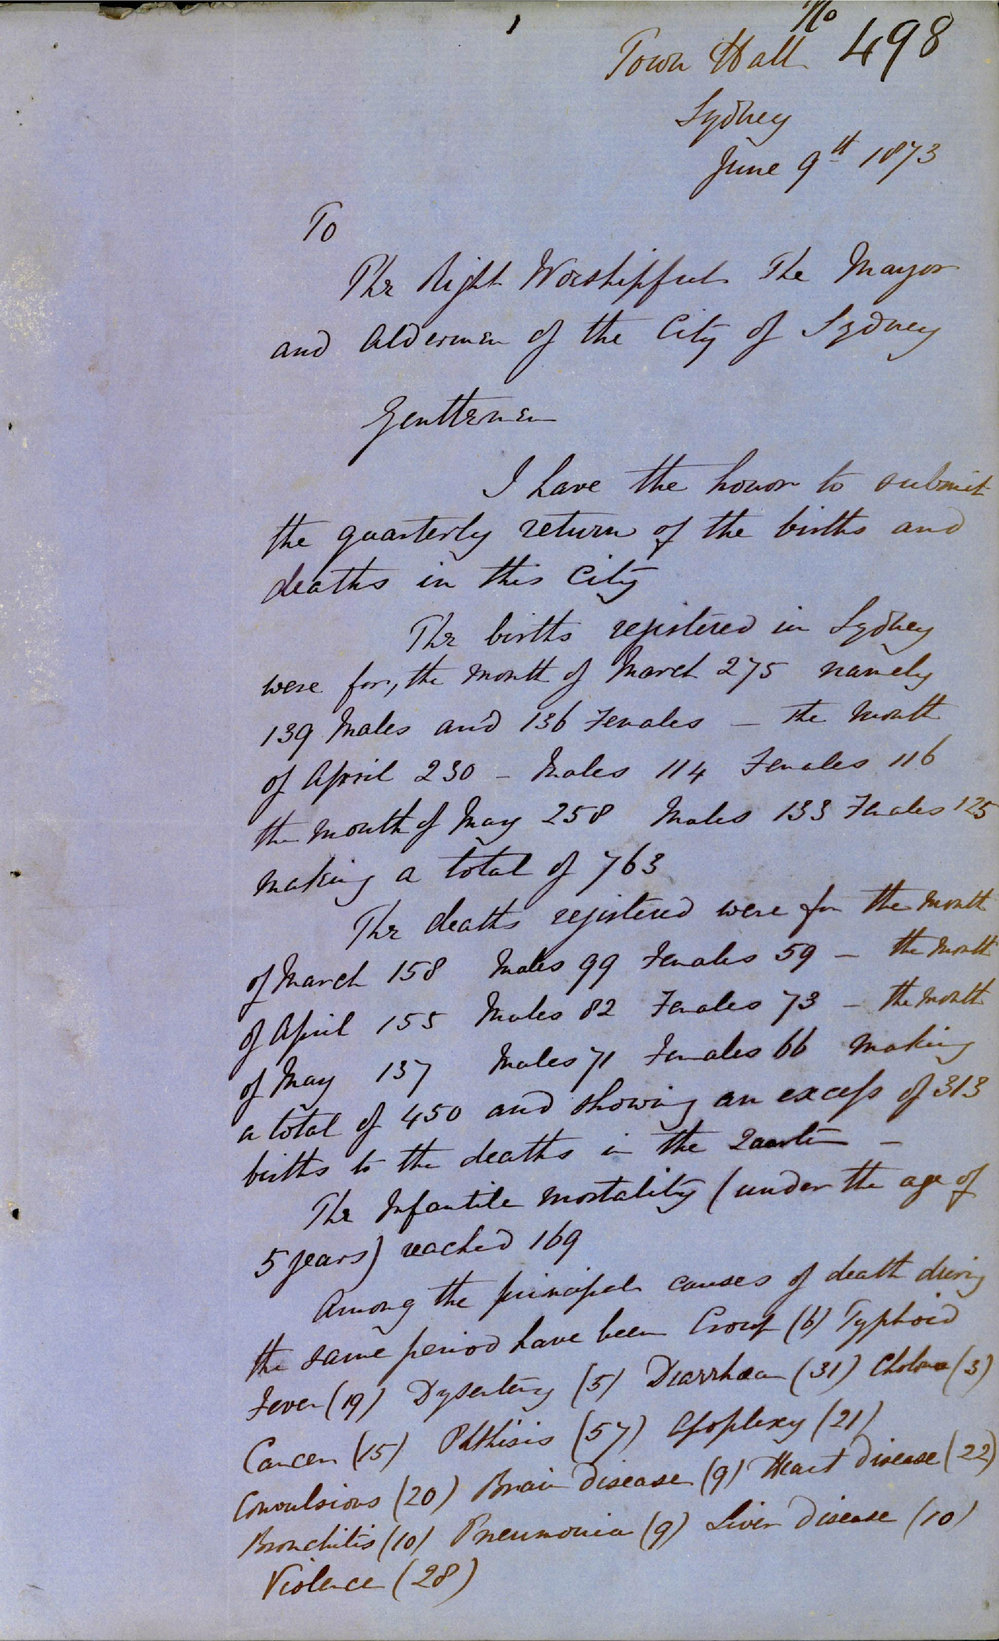 No 498
Town Hall
Sydney
June 9th 1873
To
The Right Worshipful The Mayor
and Aldermen of the City of Sydney
Gentlemen
I have the honor to submit
the quarterly return of the births and
deaths in this City
The births registered in Sydney
were for, the month of March 275 namely
139 Males and 136 Females – the month
of April 230 – Males 114 Females 116
the month of May 258 Males 133 Females 125
making a total of 763
The deaths registered were for the month
of March 158 Males 99 Females 59 – the month
of April 155 Males 82 Females 73 – the month
of May 137 Males 71 Females 66 making
a total of 450 and showing an excess of 313
births to the deaths in the Quarter –
The Infantile mortality (under the age of
5 years) reached 169
Among the principal causes of death during
the same period have been Croup (6) Typhoid
Fever (19) Dysentery (5) Diarrhœa (31) Cholera (3)
Cancer (15) Phthisis (57) Apoplexy (21)
Convulsions (20) Brain disease (9) Heart disease (22)
Bronchitis (10) Pneumonia (9) Liver disease (10)
Violence (28)